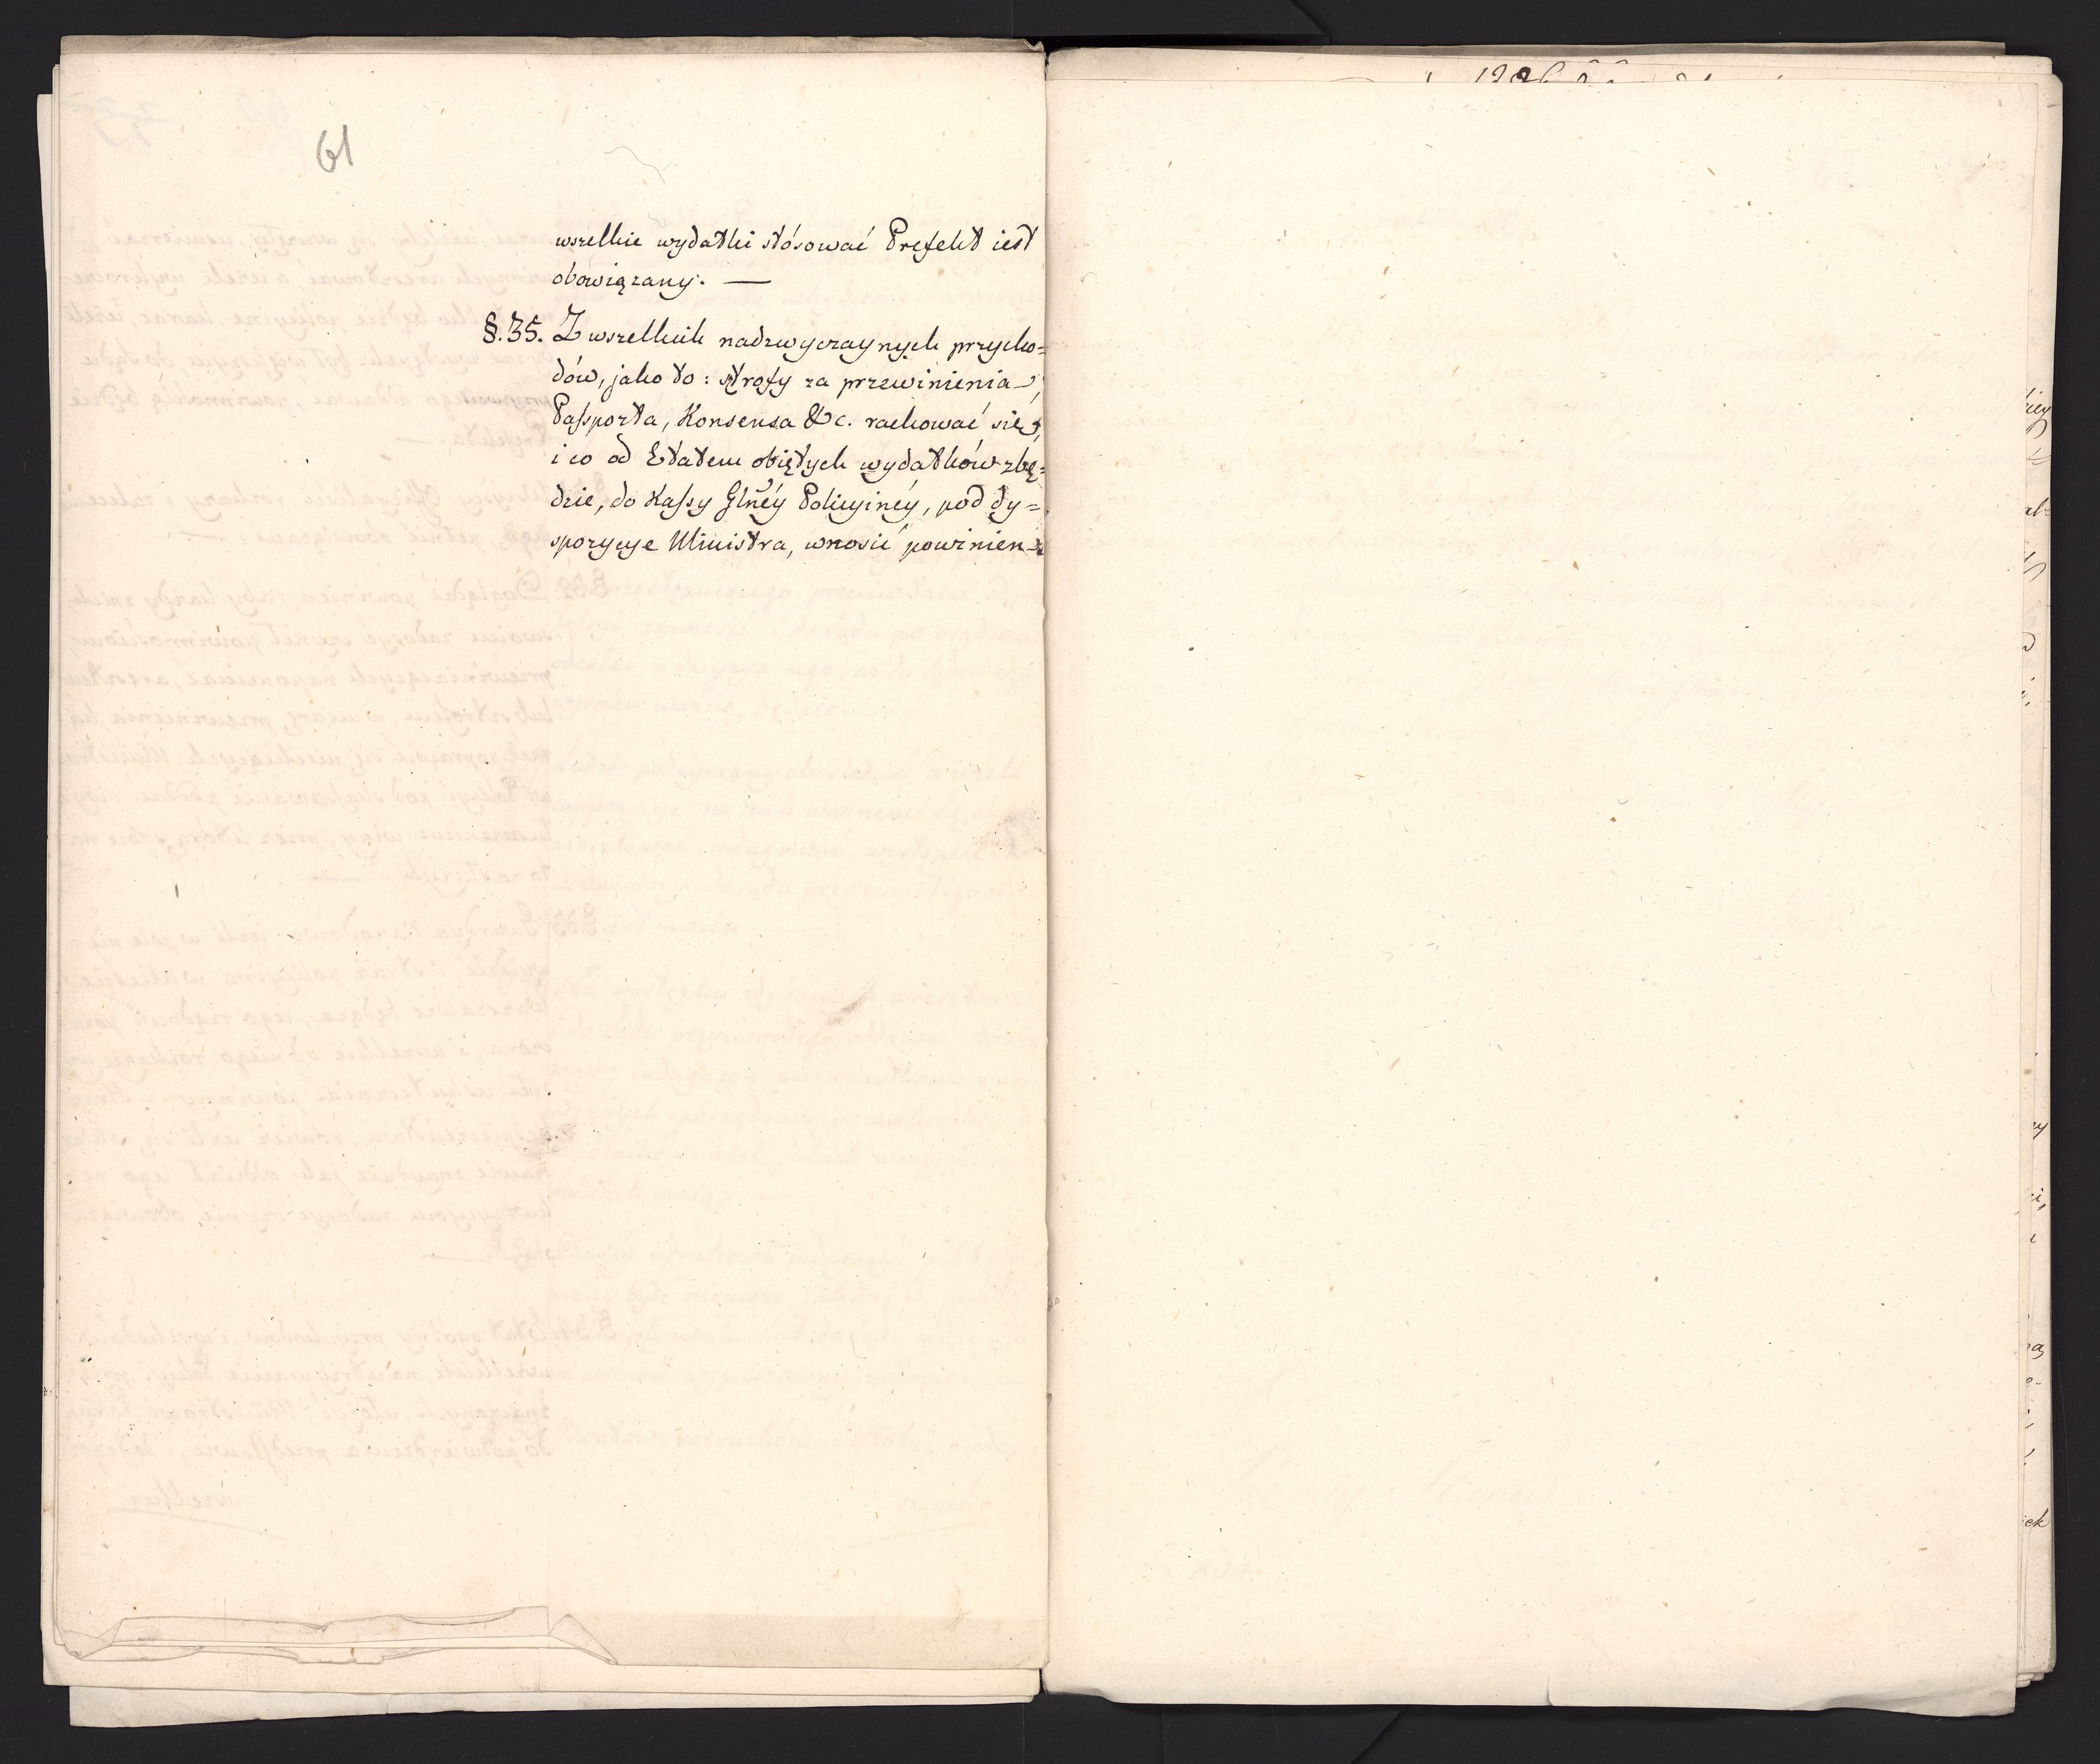 61
wszelkie wydatki stósować Prefekt iest
obowiązany. —
§. 35. Z wszelkich nadzwyczaynych przycho=
dów, jako to: strofy za przewinienia,
Passporta, Konsensa &c. rachować się,
i co od Etatem obiętych wydatków zbę=
dzie, do Kassy Głnéy Policyinéy, pod dy=
spozycye Ministra, wnosić powinien